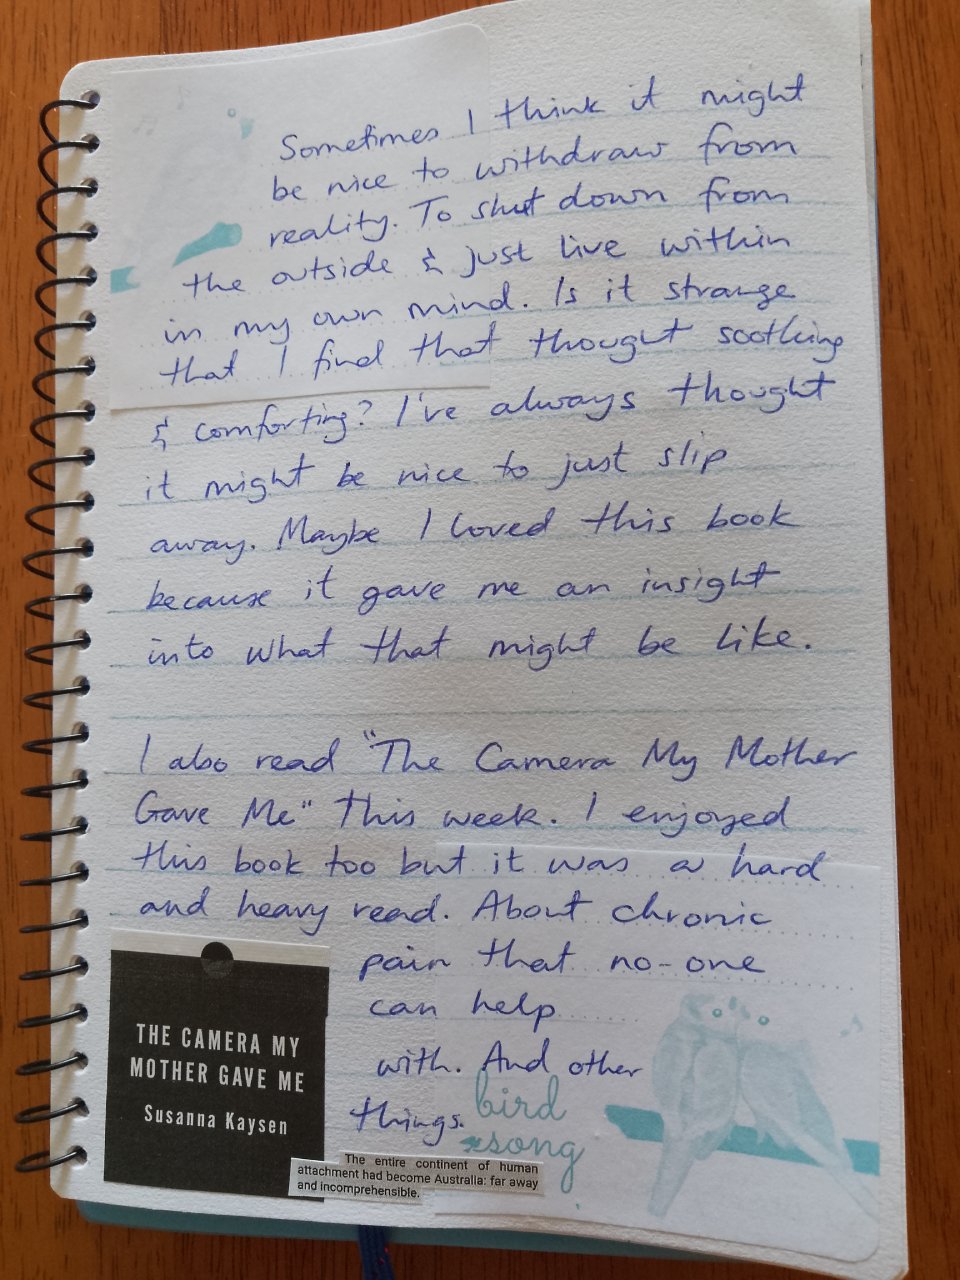 Sometimes I think it might
be nice to withdraw from
reality. To shut down from
the outside & just live within
in my own mind. Is it strange
that I find that thought soothing
& comforting? I've always thought
it might be nice to just slip
away. Maybe I loved this book
because it gave me an insight
into what that might be like.
I also read "The Camera My Mother
Gave Me" this week. I enjoyed
this book too but it was a hard
and heavy read. About chronic
pain that no-one
can help
with. And other
things.
THE CAMERA MY
MOTHER GAVE ME
Susanna Kaysen
bird
song
The entire continent of human
attachment had become Australia: far away
and incomprehensible.